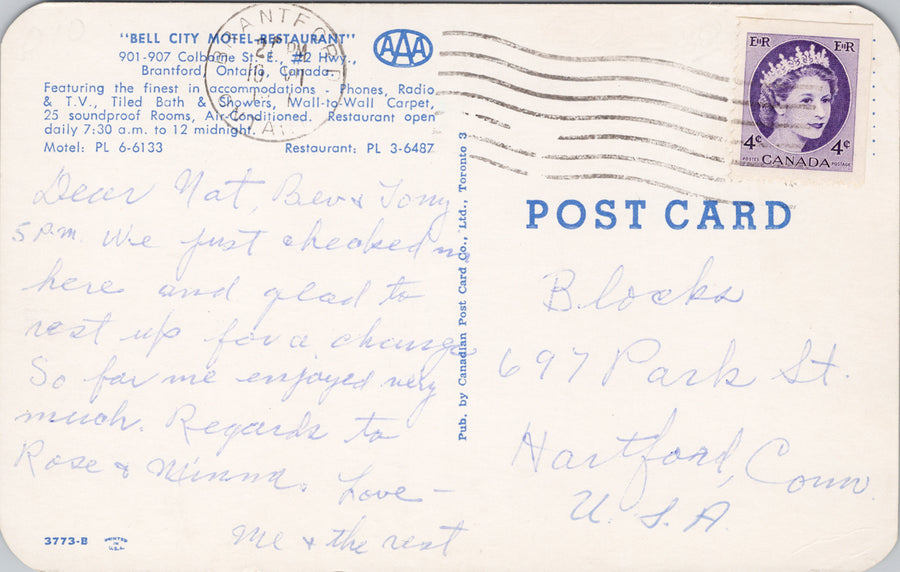 "BELL CITY MOTEL-RESTAURANT"
901-907 Colborne St. E., #2 Hwy.,
Brantford Ontario, Canada.
Featuring the finest in accommodations - Phones, Radio
& T.V., Tiled Bath & Showers, Wall-to-Wall Carpet,
25 soundproof Rooms, Air-Conditioned. Restaurant open
daily 7:30 a.m. to 12 midnight.
Motel: PL 6-6133 Restaurant: PL 3-6487
AAA
BRANTFORD
PM
ONTARIO
EIIR EIIR
4¢ 4¢
POSTES POSTAGE
CANADA
Dear Nat, Bev & Tony
5 P.M. We just checked in
here and glad to
rest up for a change
So far we enjoyed very
much. Regards to
Rose & Minna. Love -
Me & the rest
Pub. by Canadian Post Card Co., Ltd., Toronto 3
POST CARD
Blocks
697 Park St.
Hartford, Conn.
U.S.A
3773-B
PRINTED
IN
U.S.A.